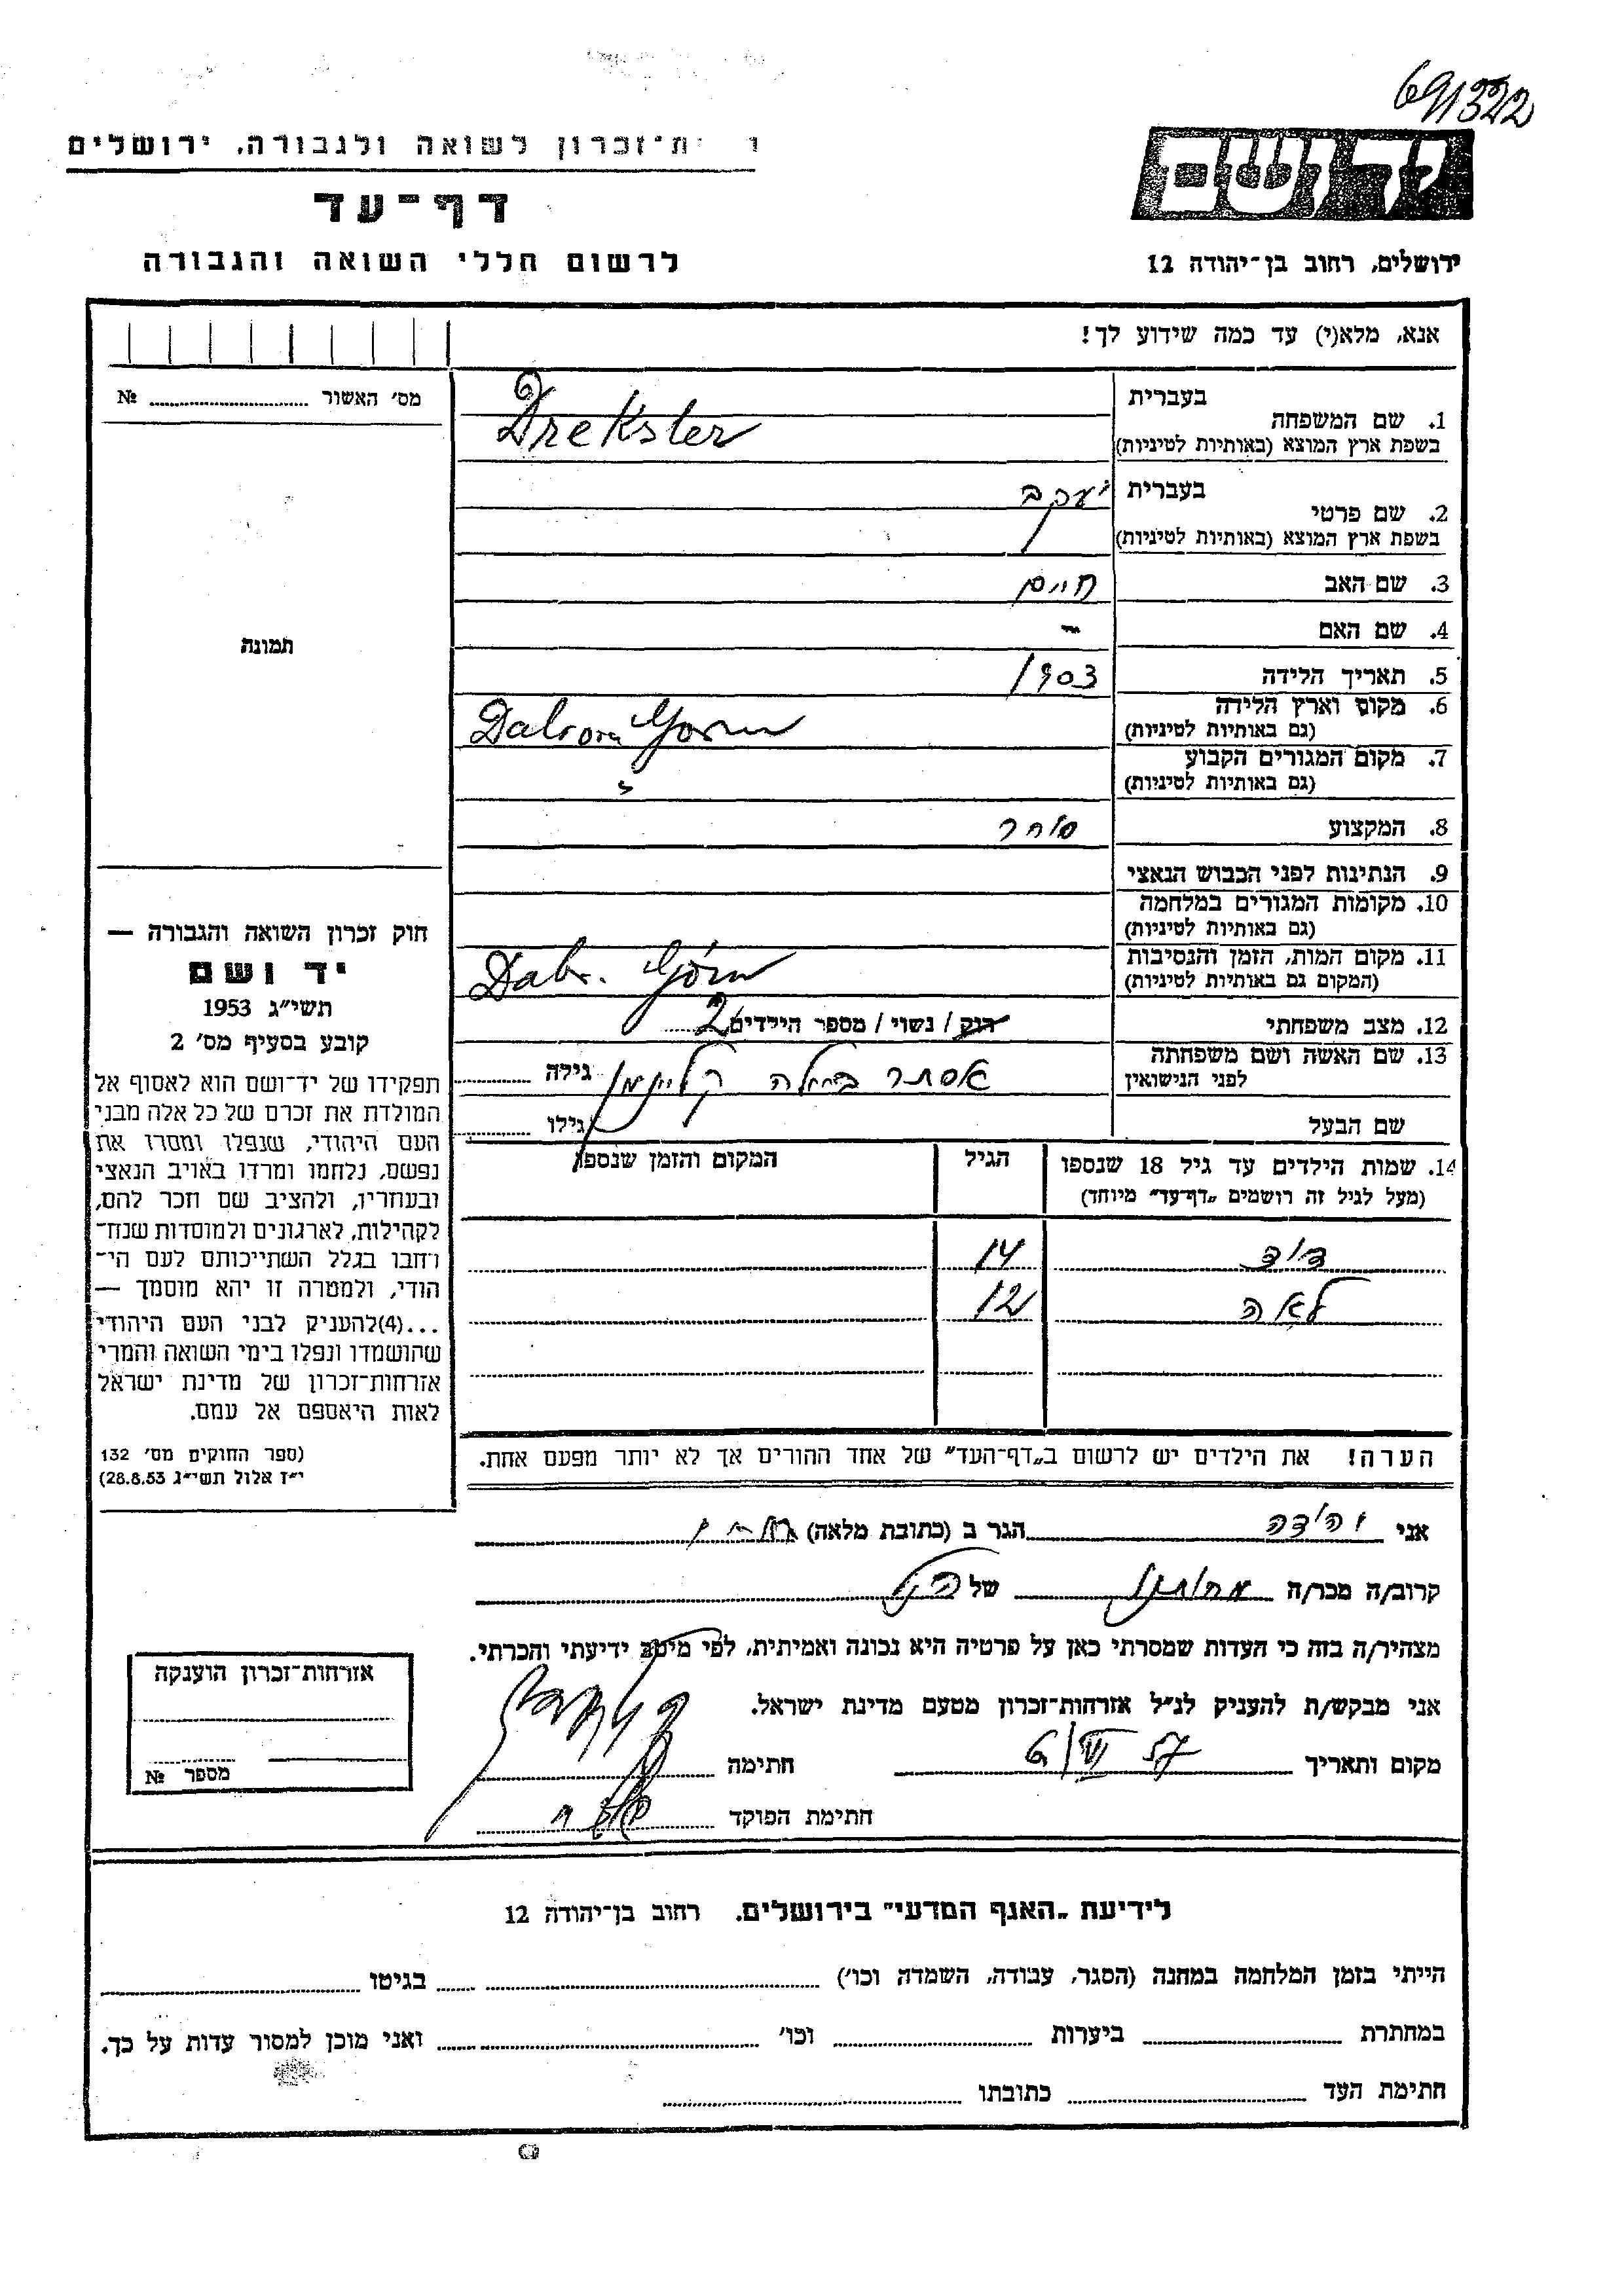 691322
ת־זכרון לשואה ולגבורה, ירושלים
דף־עד
לרשום חללי השואה והגבורה
ירושלים, רחוב בן־יהודה 12
אנא, מלא(י) עד כמה שידוע לך!
מס׳ האשור № 
בעברית
1. שם המשפחה
בשפת ארץ המוצא (באותיות לטיניות)
Drekster
בעברית יעקב
2. שם פרטי
בשפת ארץ המוצא (באותיות לטיניות)
3. שם האב חיים
4. שם האם -
5. תאריך הלידה 1903
6. מקום וארץ הלידה
(גם באותיות לטיניות)
7. מקום המגורים הקבוע
(גם באותיות לטיניות)
8. המקצוע סוחר
9. הנתינות לפני הכבוש הנאצי
10. מקומות המגורים במלחמה
(גם באותיות לטיניות)
11. מקום המות, הזמן והנסיבות
(המקום גם באותיות לטיניות)
Dabr. Górn
12. מצב משפחתי רוק / נשוי / מספר הילדים 2
13. שם האשה ושם משפחתה
לפני הנישואין
אסתר קליינמן גילה
שם הבעל גילו
14. שמות הילדים עד גיל 18 שנספו הגיל המקום והזמן שנספו
(מעל לגיל זה רושמים „דף־עד״ מיוחד)
דוד 14
לאה 12
הערה! את הילדים יש לרשום ב„דף־העד״ של אחד ההורים אך לא יותר מפעם אחת.
תמונה
חוק זכרון השואה והגבורה —
יד ושם
תשי״ג 1953
קובע בסעיף מס׳ 2
תפקידו של יד־ושם הוא לאסוף אל
המולדת את זכרם של כל אלה מבני
העם היהודי, שנפלו ומסרו את
נפשם, נלחמו ומרדו באויב הנאצי
ובעוזריו, ולהציב שם וזכר להם,
לקהילות, לארגונים ולמוסדות שנח־
רבו בגלל השתייכותם לעם הי־
הודי, ולמטרה זו יהא מוסמך —
...(4) להעניק לבני העם היהודי
שהושמדו ונפלו בימי השואה והמרי
אזרחות־זכרון של מדינת ישראל
לאות היאספם אל עמם.
(ספר החוקים מס׳ 132
י״ז אלול תשי״ג 28.8.53)
אני יהודה הגר ב (כתובת מלאה)
קרוב/ה מכר/ה של
מצהיר/ה בזה כי העדות שמסרתי כאן על פרטיה היא נכונה ואמיתית, לפי מיטב ידיעתי והכרתי.
אני מבקש/ת להעניק לנ״ל אזרחות־זכרון מטעם מדינת ישראל.
מקום ותאריך 6/VIII 57 חתימה
חתימת הפוקד
אזרחות־זכרון הוענקה
מספר №
לידיעת „האגף המדעי״ בירושלים, רחוב בן־יהודה 12
הייתי בזמן המלחמה במחנה (הסגר, עבודה, השמדה וכו׳) בגיטו
במחתרת ביערות וכו׳ ואני מוכן למסור עדות על כך.
חתימת העד כתובתו